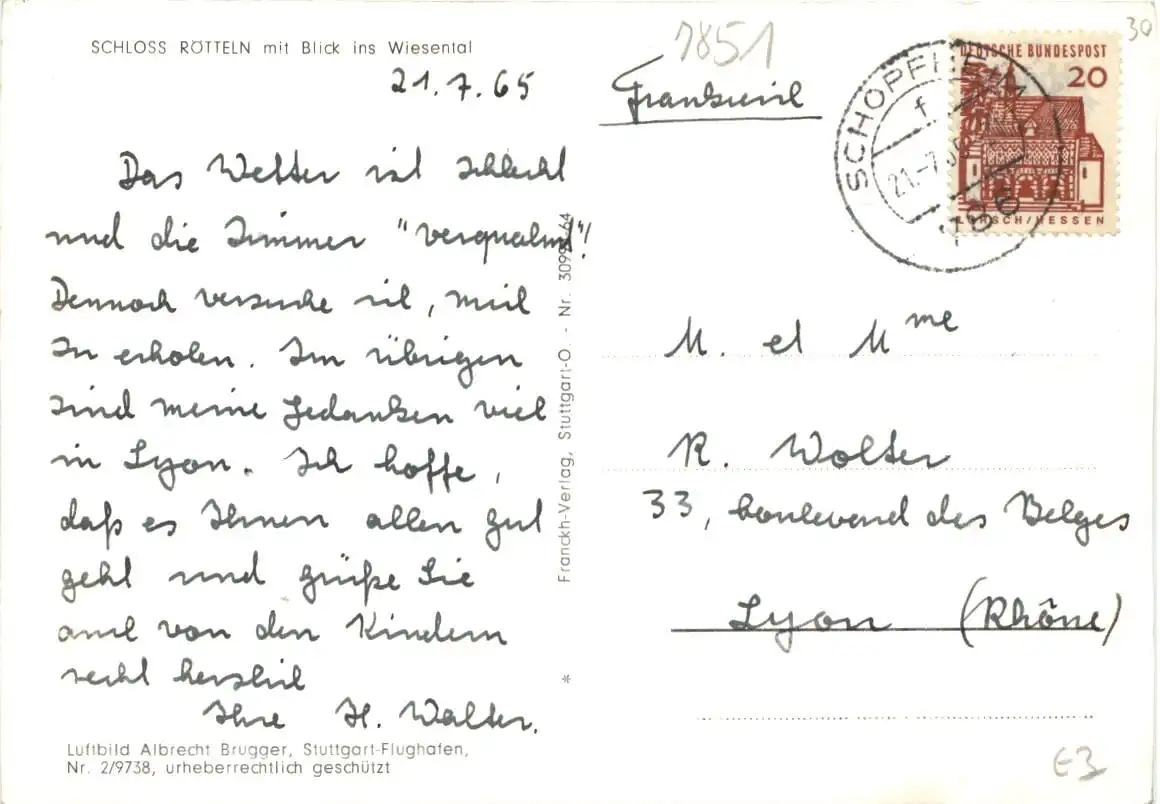 SCHLOSS RÖTTELN mit Blick ins Wiesental
21.7.65
Das Wetter ist schlecht
und die Zimmer "verqualmt"!
Dennoch versuche ich, mich
zu erholen. Im übrigen
sind meine Gedanken viel
in Lyon. Ich hoffe,
daß es Ihnen allen gut
geht und grüße Sie
auch von den Kindern
recht herzlich
Ihre H. Walter.
Luftbild Albrecht Brugger, Stuttgart-Flughafen,
Nr. 2/9738, urheberrechtlich geschützt
Franckh-Verlag, Stuttgart-O. - Nr.
*
7851
Frankreich
30
DEUTSCHE BUNDESPOST
20
LORSCH/HESSEN
SCHOPFHEIM
f
21.-7.
786
M. et Mme
R. Wolter
33, boulevard des Belges
Lyon (Rhône)
€3